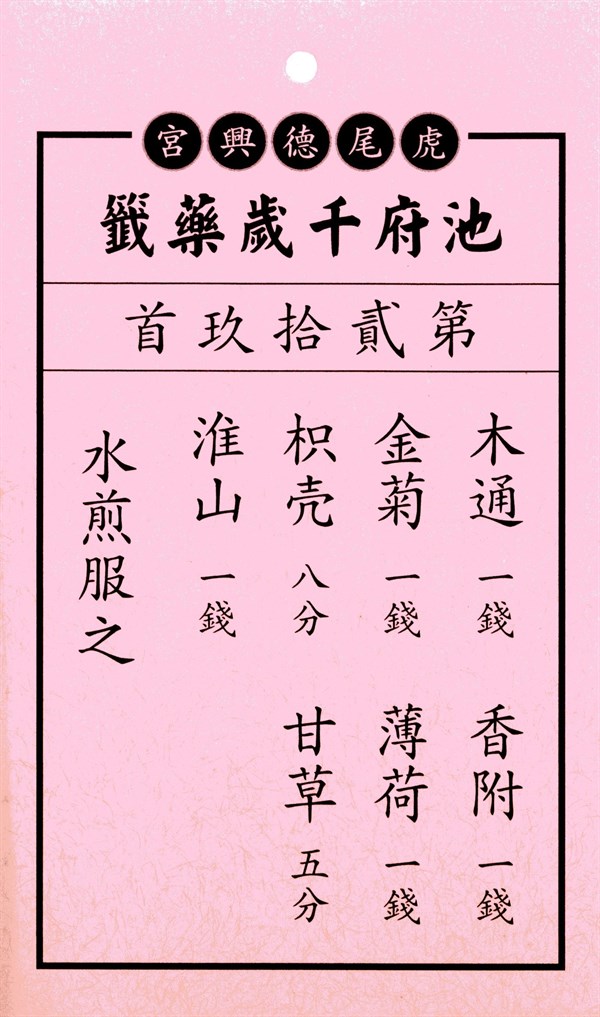 虎尾德興宮
池府千歲藥籤
第貳拾玖首
木通一錢 香附一錢
金菊一錢 薄荷一錢
枳壳八分 甘草五分
淮山一錢
水煎服之